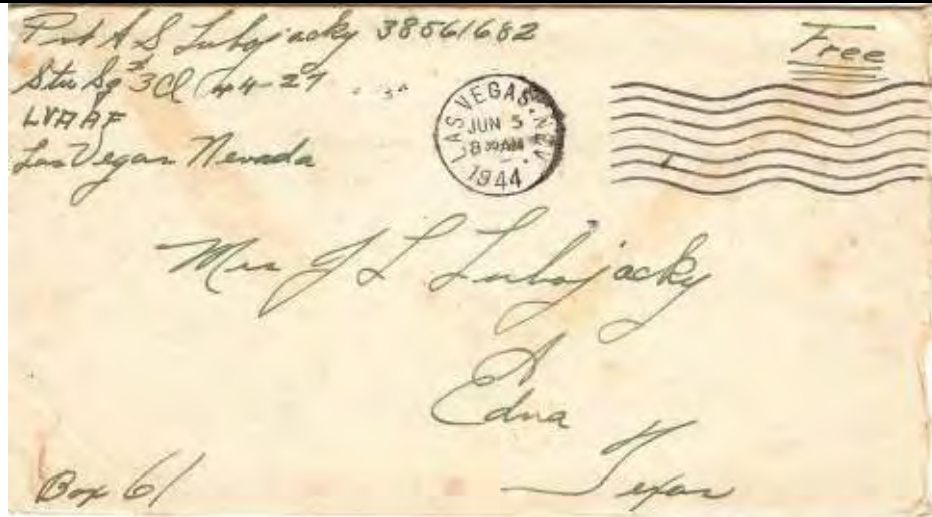 Pvt A S Lubojacky 38561682
Stu Sq #3 Cl 44-27
LVAAF
Las Vegas Nevada
Free
LAS VEGAS, NEV.
JUN 5
8 30 AM
1944
Mrs J L Lubojacky
Edna
Texas
Box 61